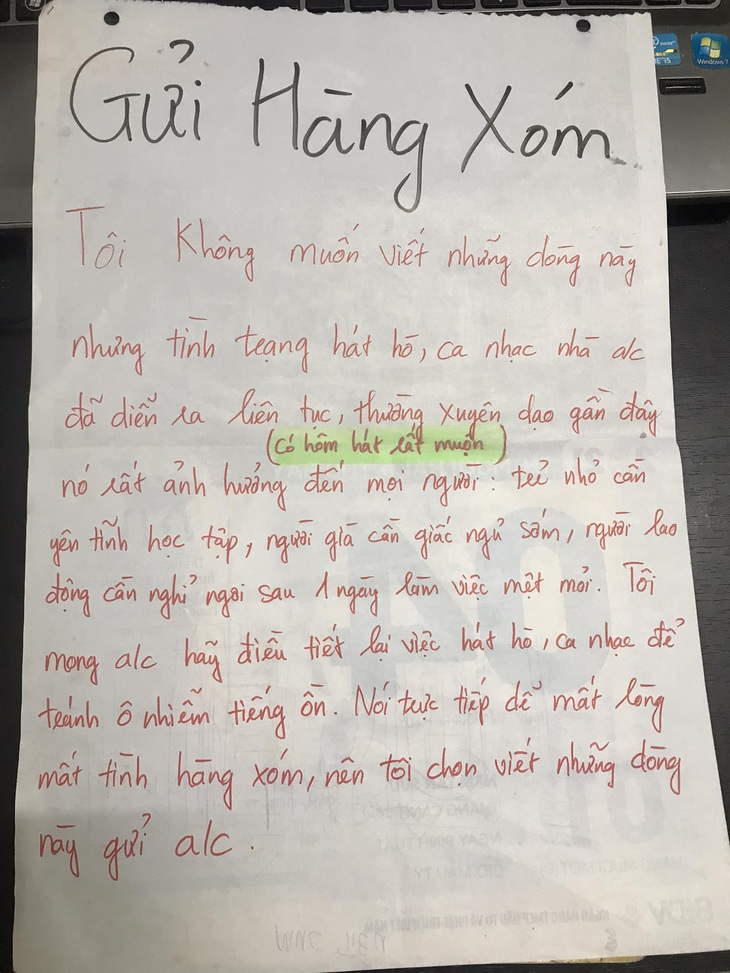 Gửi Hàng Xóm
Tôi Không muốn viết những dòng này
nhưng tình trạng hát hò, ca nhạc nhà a/c
đã diễn ra liên tục, thường xuyên dạo gần đây
(có hôm hát rất muộn)
nó rất ảnh hưởng đến mọi người: trẻ nhỏ cần
yên tĩnh học tập, người già cần giấc ngủ sớm, người lao
động cần nghỉ ngơi sau 1 ngày làm việc mệt mỏi. Tôi
mong a/c hãy điều tiết lại việc hát hò, ca nhạc để
tránh ô nhiễm tiếng ồn. Nói trực tiếp dễ mất lòng
mất tình hàng xóm, nên tôi chọn viết những dòng
này gửi a/c.
Windows 7
BIDV
NGÂN HÀNG TMCP ĐẦU TƯ VÀ PHÁT TRIỂN VIỆT NAM